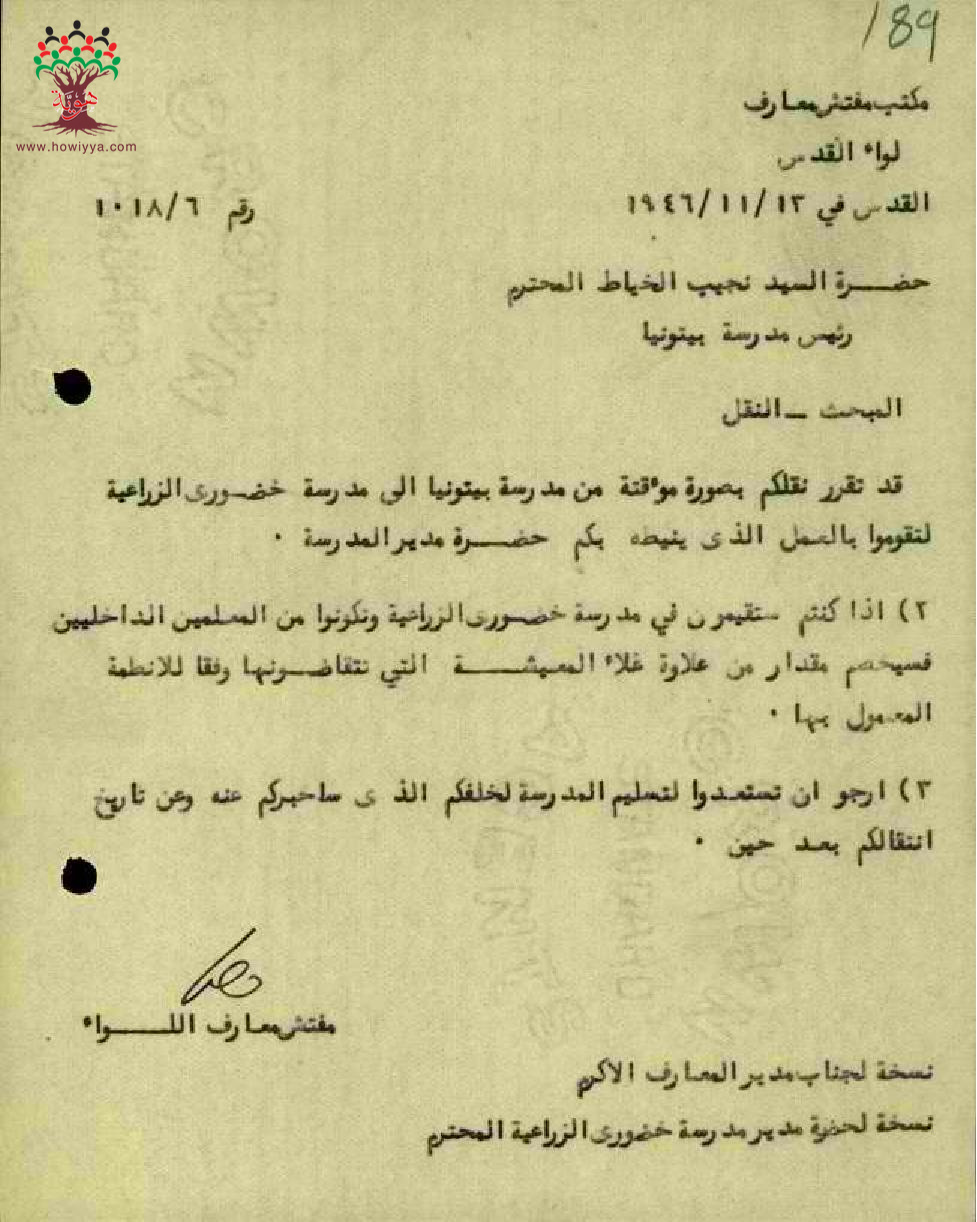 189
هوية
www.howiyya.com
مكتب مفتش معارف
لواء القدس
القدس في ١٩٤٦/١١/١٣
رقم ١٠١٨/٦
حضـــرة السيد نجيب الخياط المحترم
رئيس مدرسة بيتونيا
المبحث ــ النقل
قد تقرر نقلكم بصورة موءقتة من مدرسة بيتونيا الى مدرسة خضـورى الزراعية
لتقوموا بالعمل الذى ينيطه بكم حضـــرة مدير المدرسة ٠
٢) اذا كنتم ستقيمون في مدرسة خضـورى الزراعية وتكونوا من المعلمين الداخليين
فسيخصم مقدار من علاوة غلاء المعيشـــة التي تتقاضـونها وفقا للانظمة
المعمول بها ٠
٣) ارجو ان تستعدوا لتسليم المدرسة لخلفكم الذى ساخبركم عنه وعن تاريخ
انتقالكم بعد حين ٠
مفتش معارف اللــــواء
نسخة لجناب مدير المعارف الاكرم
نسخة لحضرة مدير مدرسة خضورى الزراعية المحترم